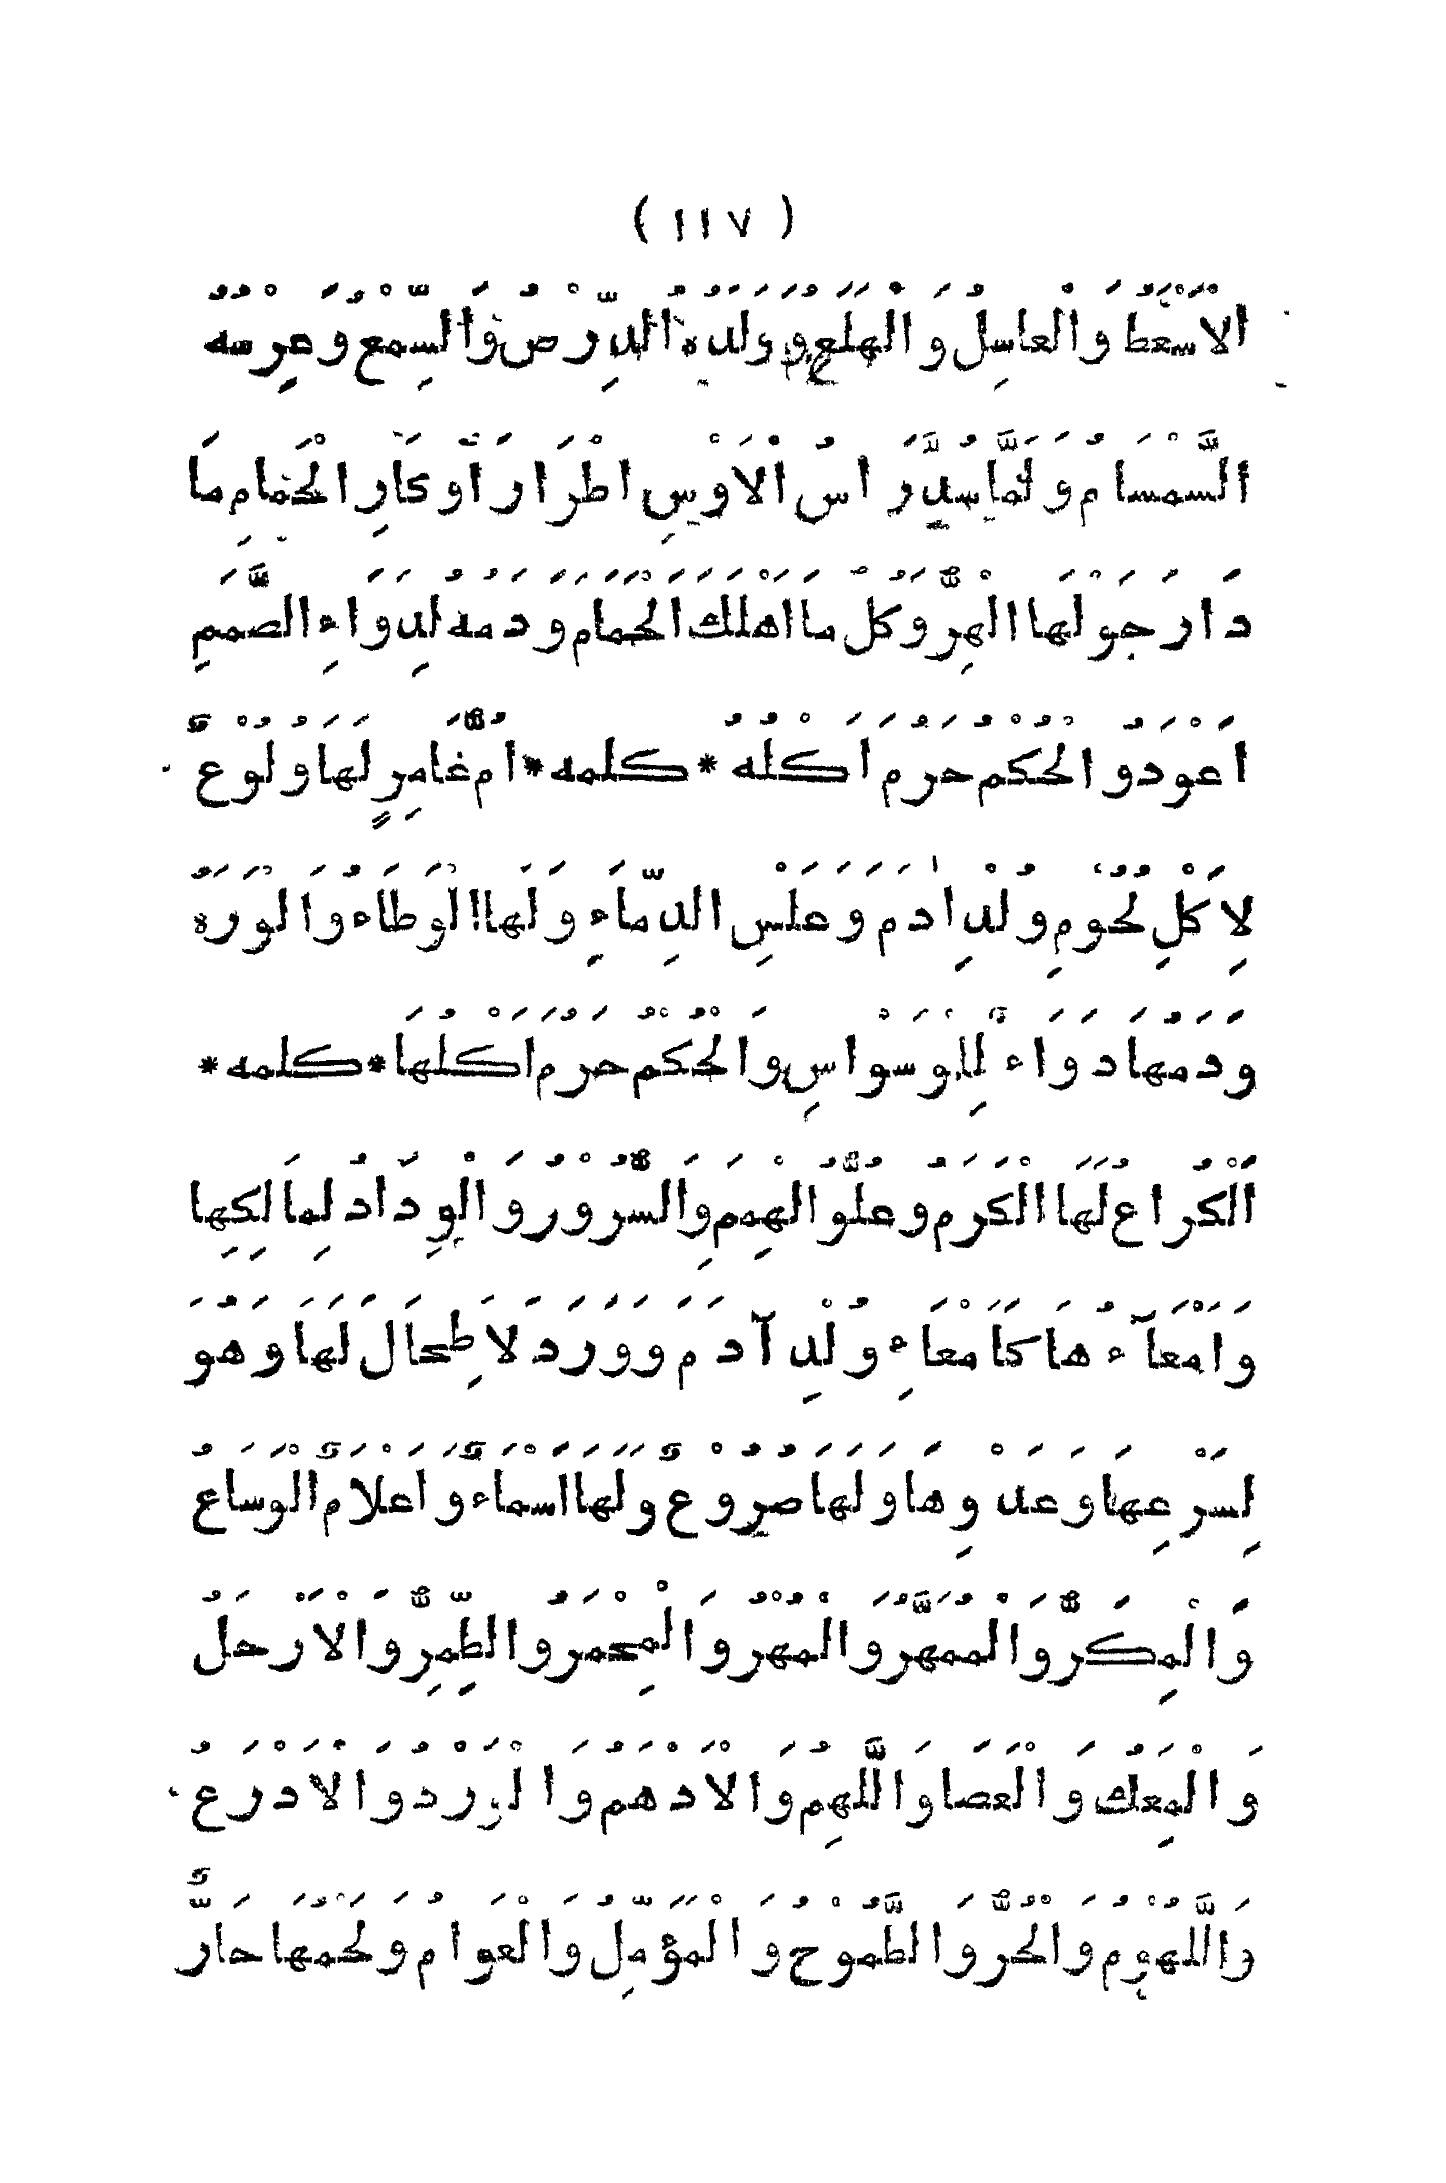 ( ١١٧ )
الْاَسْعَطُ وَالْعَاسِلُ وَالْهَلَعُ وَوَلَدُهُ الدِّرْصُ وَالسِّمْعُ وَعِرْسُهُ
السَّمْسَامُ وَلَمَّا سُدِّرَ رَاسُ الْاَوْسِ اَطْرَارَ اَوْكَارِ الْحَمَامِ مَا
دَارَ حَوْلَهَا الْهِرُّ وَكُلُّ مَا اَهْلَكَ الْحَمَامَ وَدَمُهُ لِدَوَاءِ الصَّمَمِ
اَعْوَدُ وَالْحُكْمُ حُرِّمَ اَكْلُهُ * كلمه * اُمُّ عَامِرٍ لَهَا وَلُوْعٌ
لِاَكْلِ لُحُوْمِ وُلْدِ اٰدَمَ وَعَلَسِ الدِّمَاءِ وَلَهَا الْوَطَاءُ وَالْوَرَهُ
وَدَمُهَا دَوَاءٌ لِلْوَسْوَاسِ وَالْحُكْمُ حُرِّمَ اَكْلُهَا * كلمه *
اَلْكُرَاعُ لَهَا الْكَرَمُ وَعُلُوُّ الْهِمَمِ وَالسُّرُوْرُ وَالْوِدَادُ لِمَالِكِهَا
وَاَمْعَآءُهَا كَاَمْعَاءِ وُلْدِ آدَمَ وَوَرَدَ لَاطِحَالَ لَهَا وَهُوَ
لِسَرْعِهَا وَعَدْوِهَا وَلَهَا صُرُوْعٌ وَلَهَا اَسْمَاءٌ وَاَعْلَامٌ الْوَسَاعُ
وَالْمِكَرُّ وَالْمُمَهَّرُ وَالْمُهْرُ وَالْمِحْمَرُ وَالطِّمِرُّ وَالْاَرْحَلُ
وَالْمِعَكُ وَالْعَصَا وَاللِّهَمُّ وَالْاَدْهَمُ وَالْوَرْدُ وَالْاَدْرَعُ
وَاللُّهُوْمُ وَالْحُرُّ وَالطَّمُوْحُ وَالْمُؤَمِّلُ وَالْعَوَامُ وَلَحْمُهَا حَارٌّ